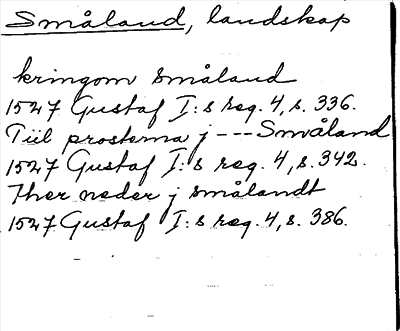 Småland, landskap
kringom småland
1527 Gustaf I:s reg. 4, s. 336.
Tiil prosterna j --- Småland
1527 Gustaf I:s reg. 4, s. 342.
Ther neder j smålandt
1527 Gustaf I:s reg. 4, s. 386.